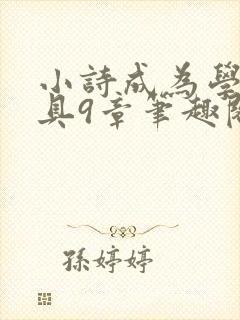 小詩成為學
具9章筆趣閣
孫婷婷